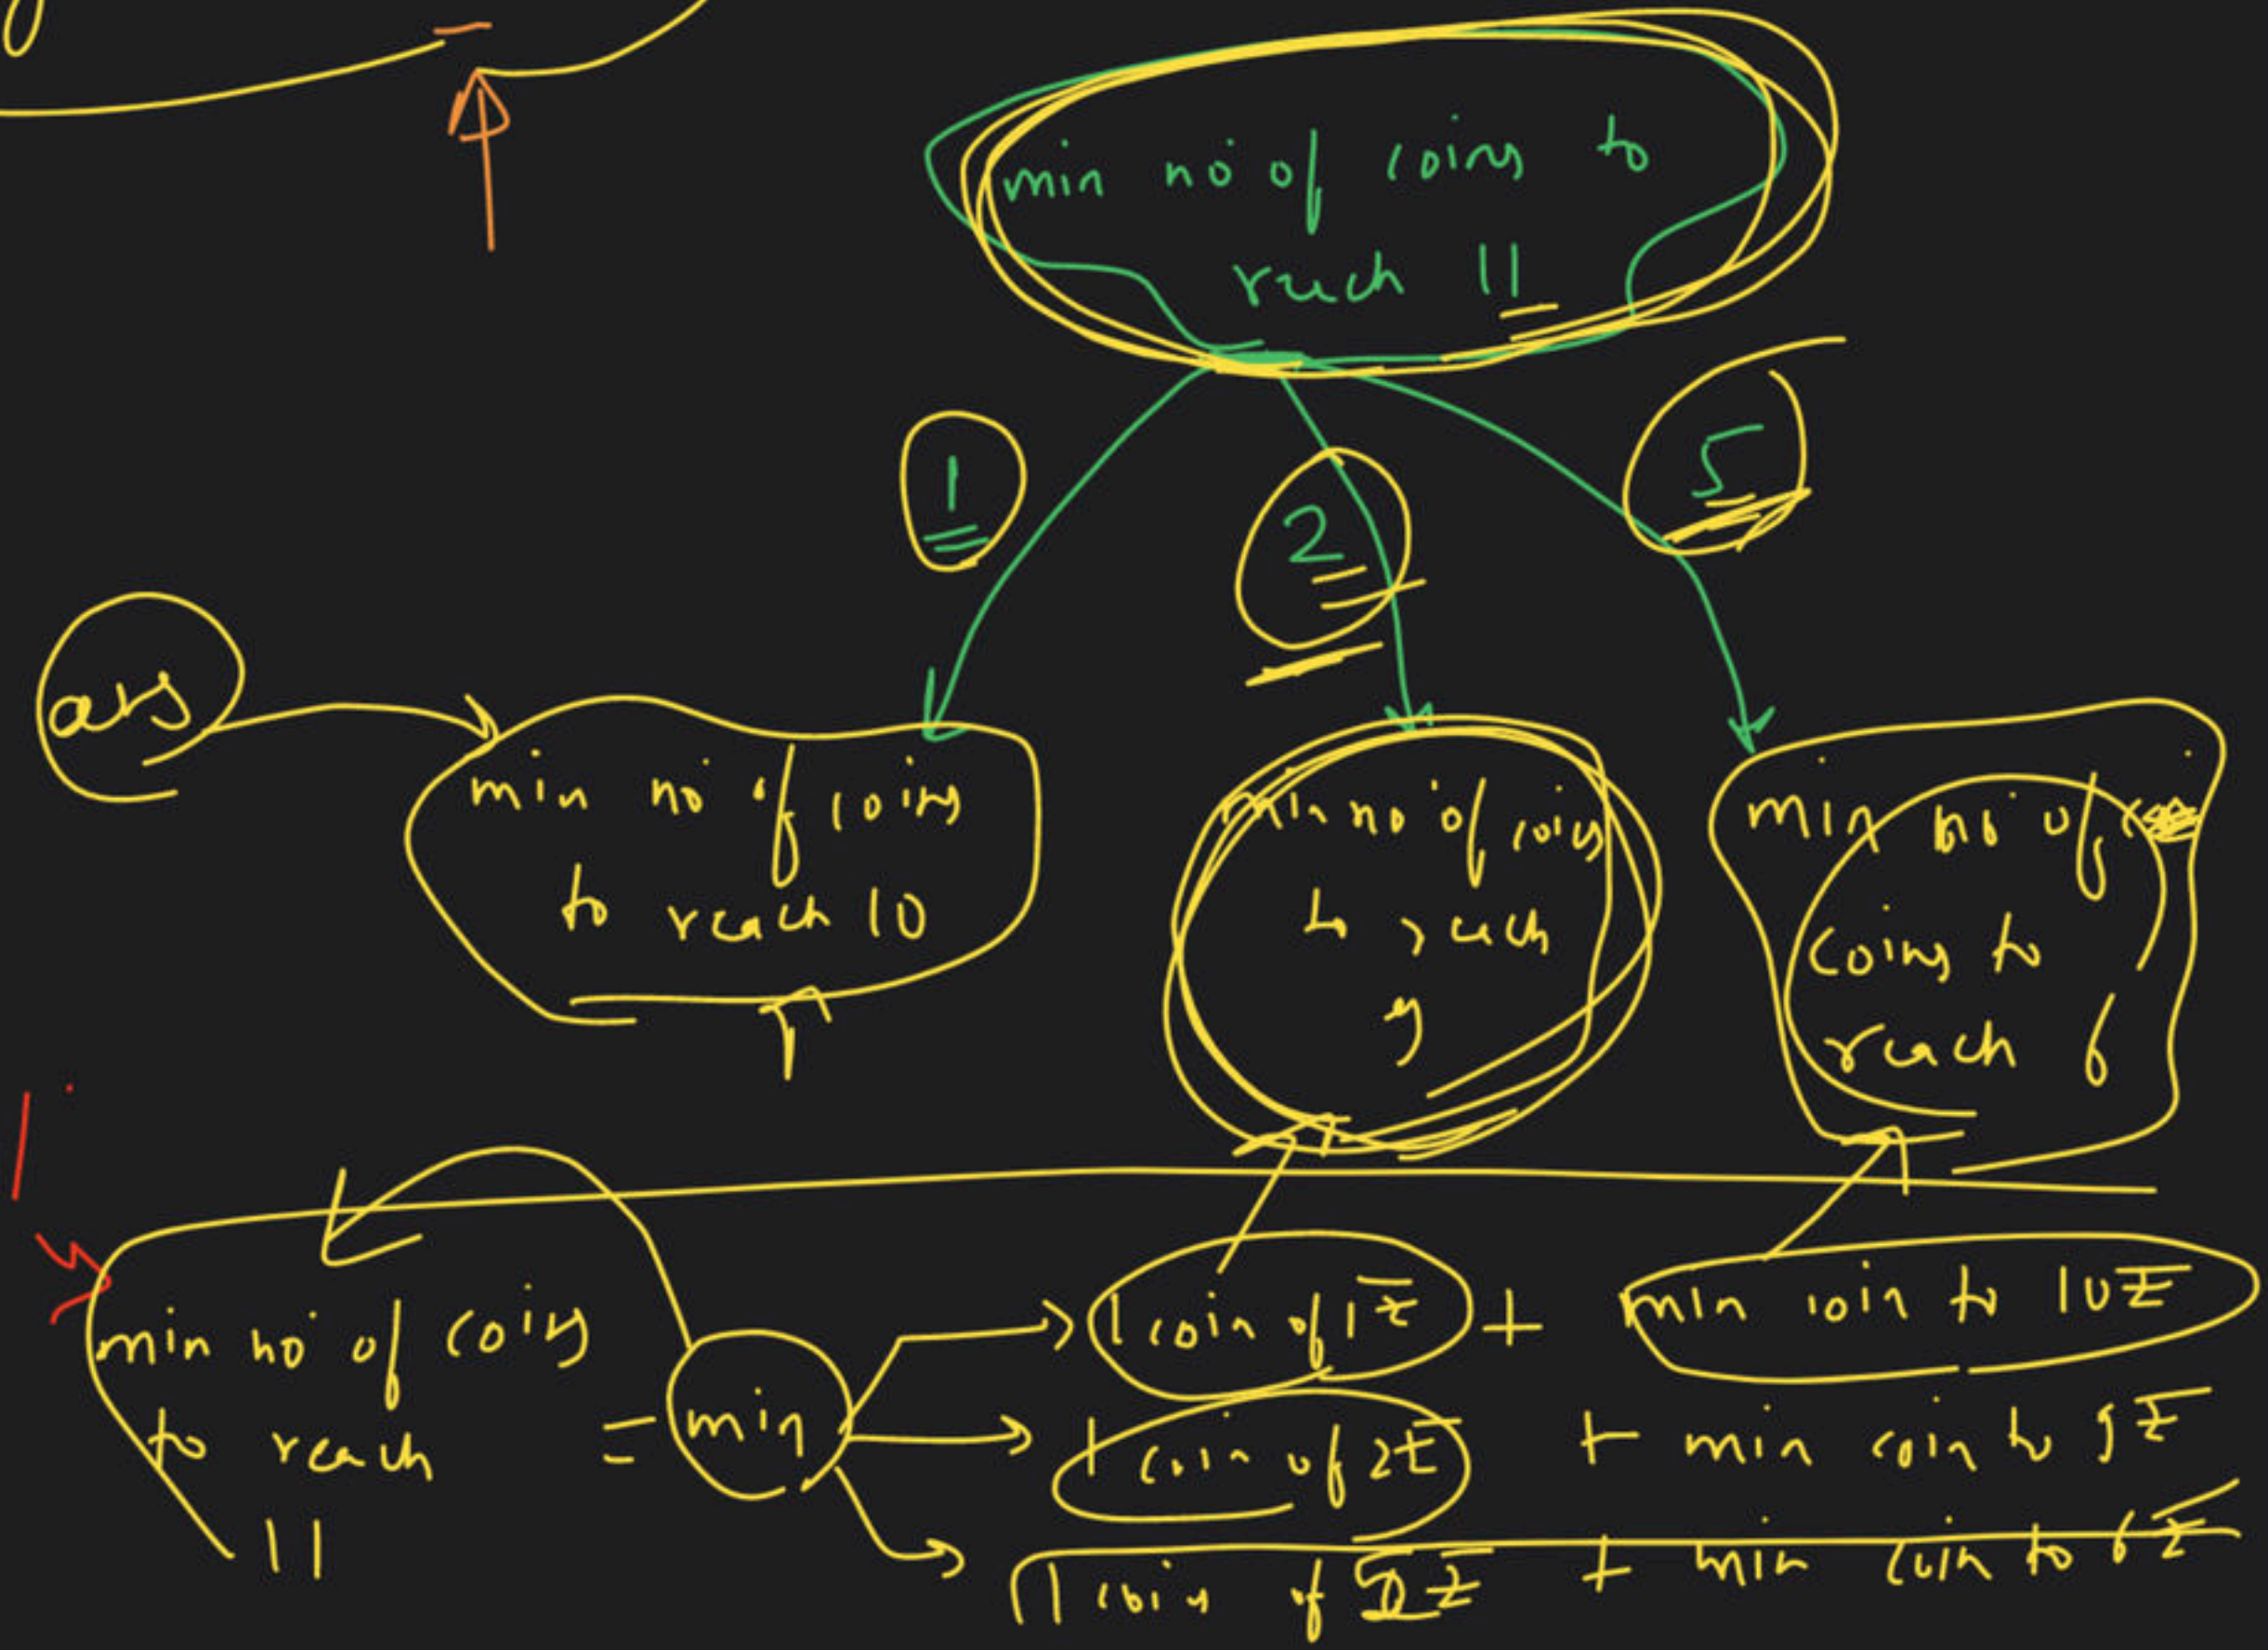 min no of coins to
reach 11
1
2
5
ans
min no of coins
to reach 10
min no of coins
to reach
9
min no of
coins to
reach 6
min no of coins
to reach
11
= min
1 coin of 1₹ + min coin to 10₹
1 coin of 2₹ + min coin to 9₹
1 coin of 5₹ + min coin to 6₹